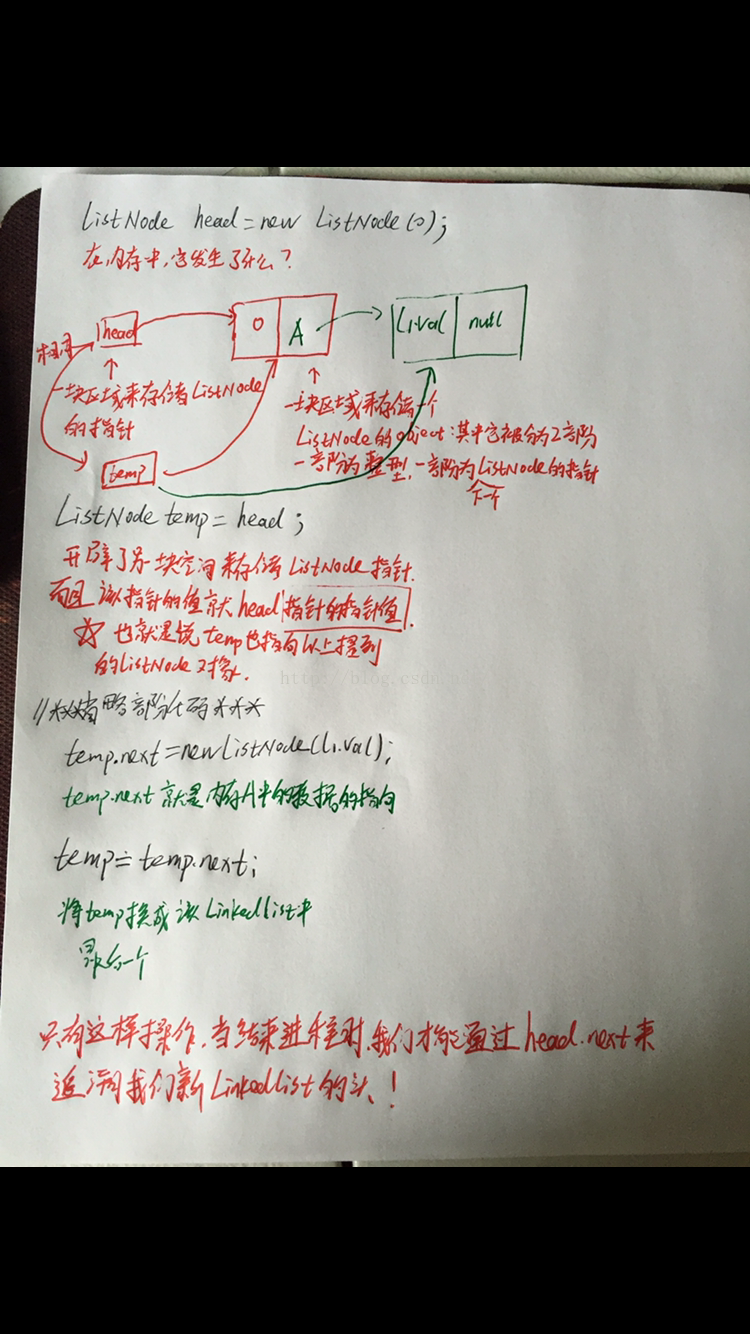 ListNode head = new ListNode(0);
在内存中,它发生了什么?
head
0
A
l1.val
null
相同
一块区域来存储ListNode
的指针
一块区域来存储一个
ListNode的object:其中它被分为2部分
一部分为整型,一部分为ListNode的指针
下一个
temp
ListNode temp = head;
开辟了另一块空间来存储ListNode指针.
而且该指针的值就head指针的指针值.
☆ 也就是说temp也指向以上提到
的ListNode对象.
http://blog.csdn
//***省略部分代码***
temp.next=new ListNode(l1.val);
temp.next就是内存A中的数据的指向
temp = temp.next;
将temp换成该Linkedlist中
最后一个
只有这样操作,当结束进程时,我们才能通过head.next来
追溯我们新Linkedlist的头!